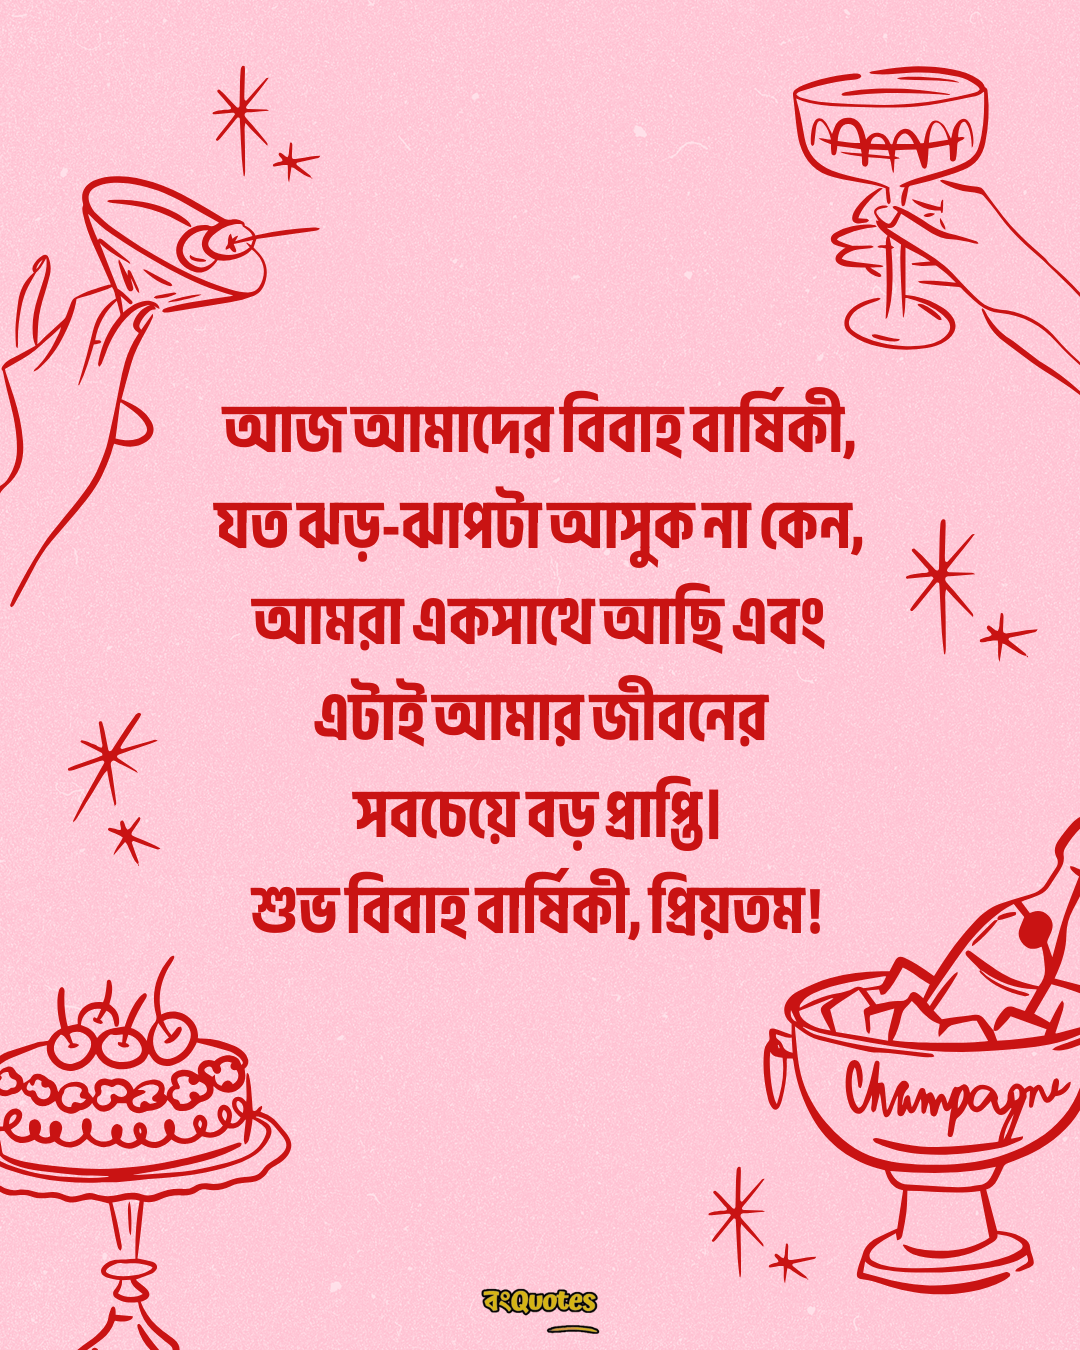 আজ আমাদের বিবাহ বার্ষিকী,
যত ঝড়-ঝাপটা আসুক না কেন,
আমরা একসাথে আছি এবং
এটাই আমার জীবনের
সবচেয়ে বড় প্রাপ্তি।
শুভ বিবাহ বার্ষিকী, প্রিয়তম!
Champagne
বংQuotes